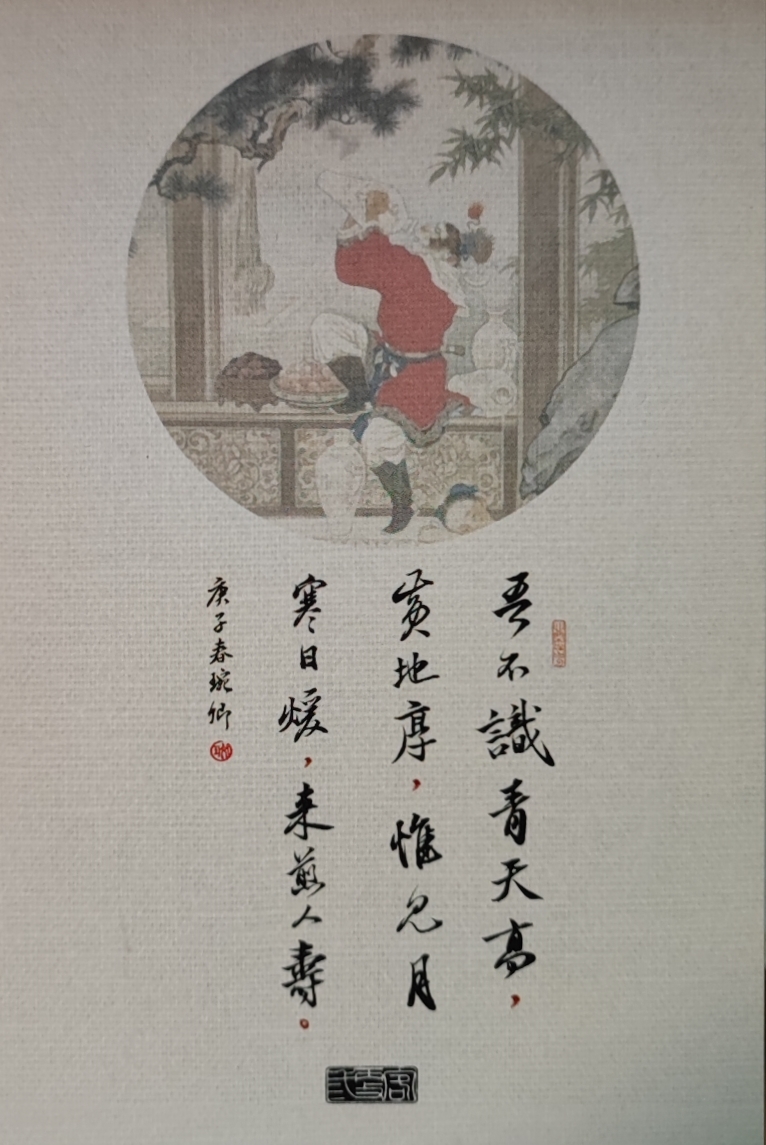 吾不識青天高，
黃地厚，惟見月
寒日煖，来煎人壽。
庚子春琬卿